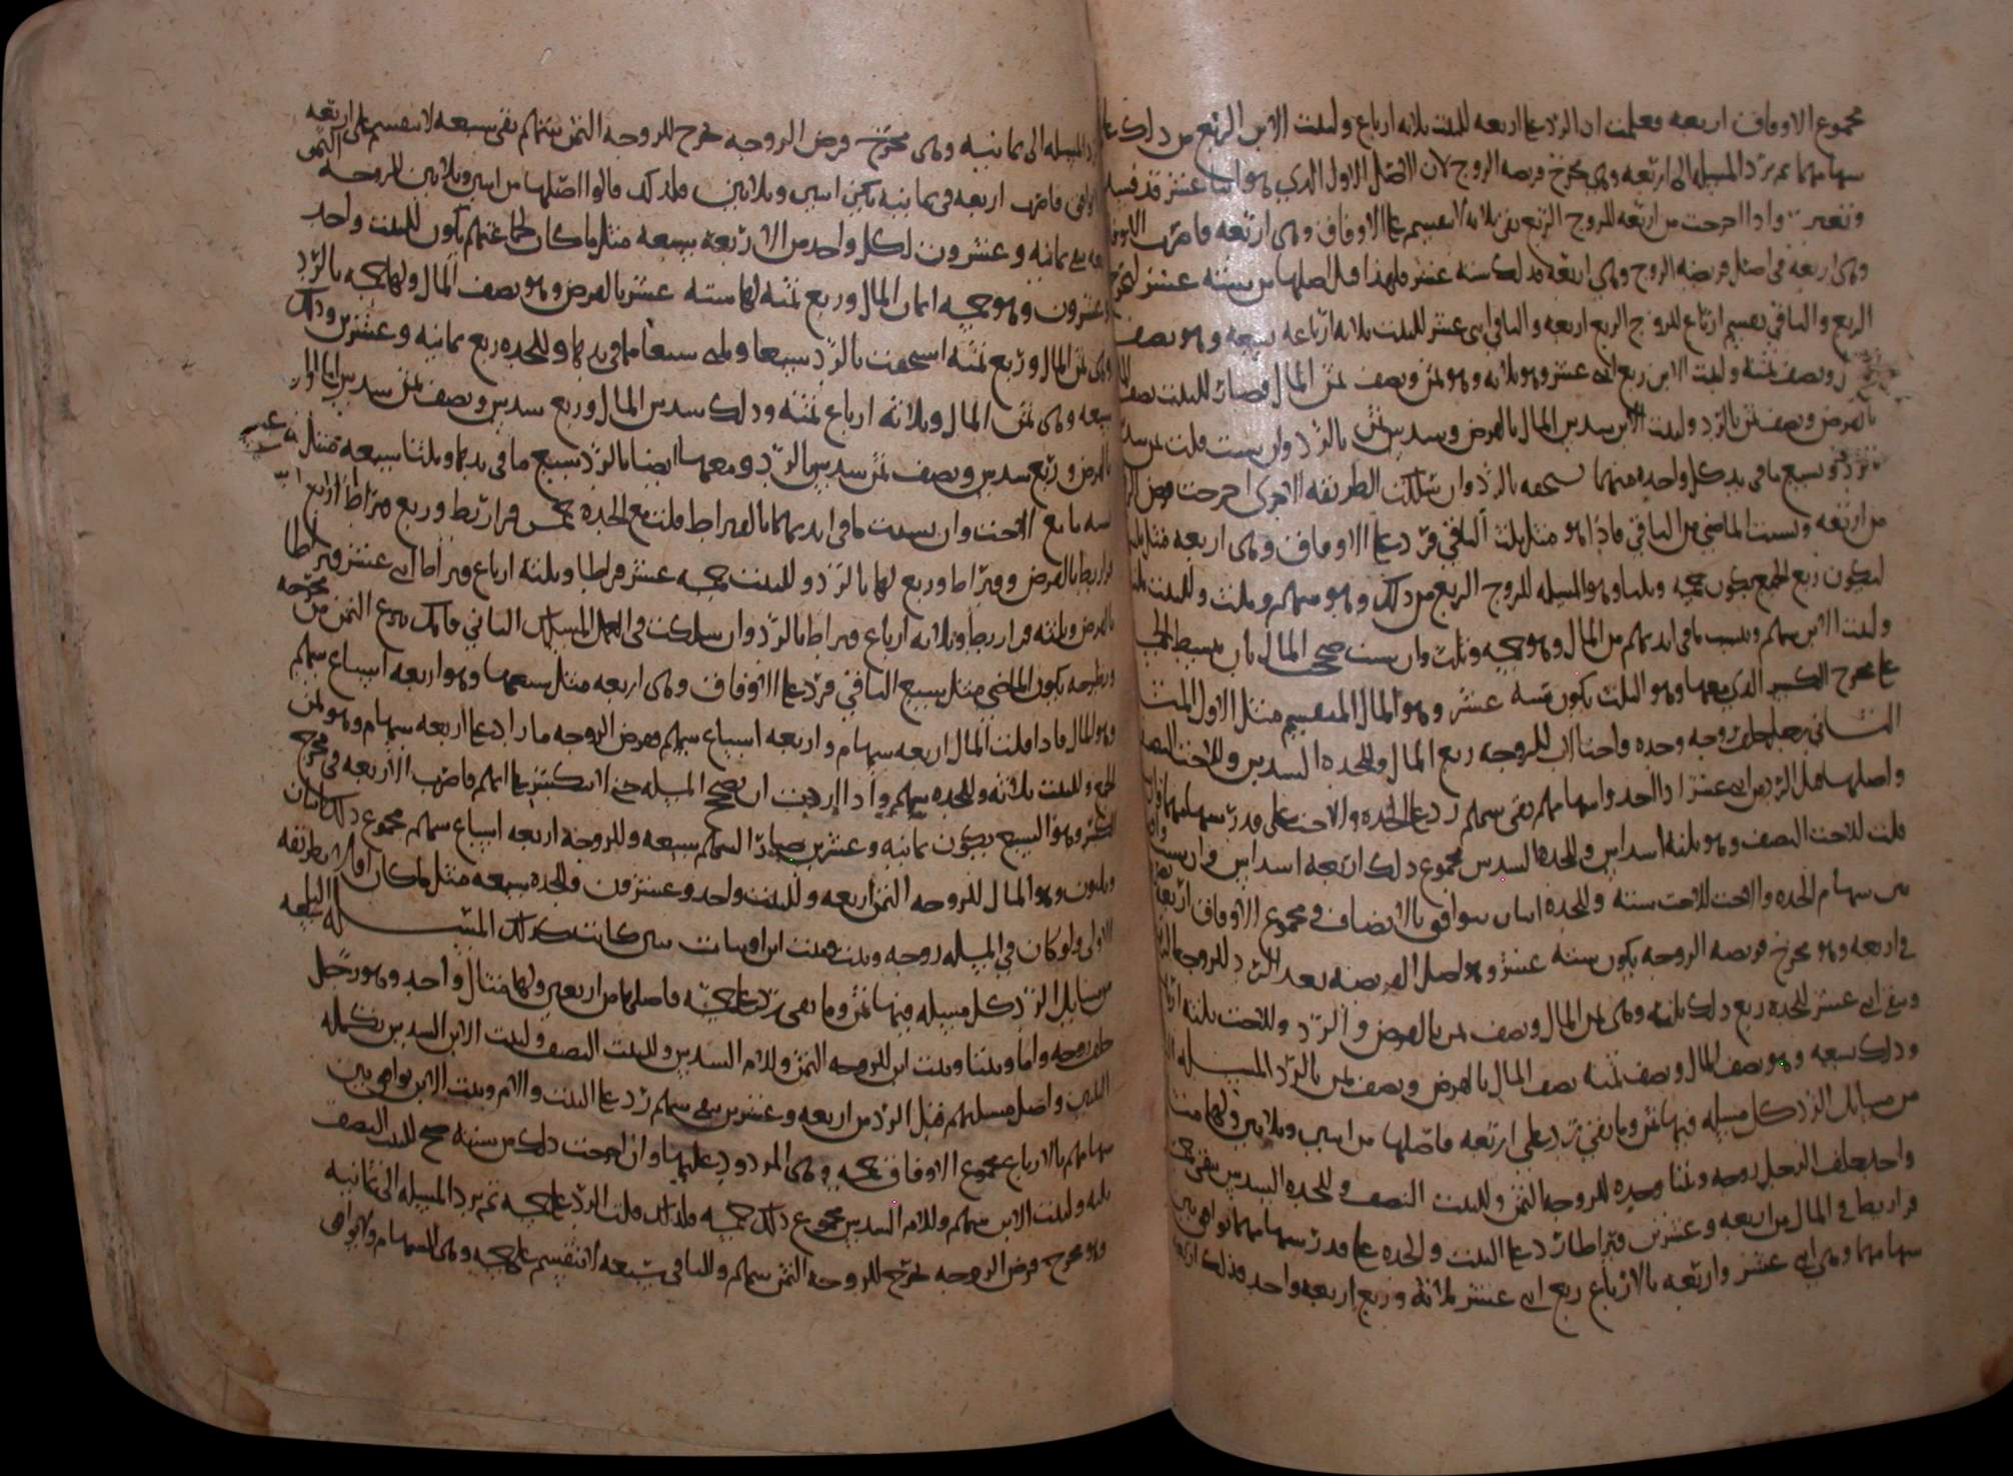 مجموع الاوفاق اربعه فعلمت ان الرد على اربعه للبنت ثلاثه ارباع ولبنت الابن الربع من ذلك على
سهامهما ثم ترد المسله الى اربعه وهى مخرج فريضه الزوج لان الاصل الاول الذي هو اثنا عشر قد فسد
وتغير واذا اخرجت من اربعه للزوج الربع بقى ثلاثه لا تنقسم على الاوفاق وهى اربعه فاضرب الاوفاق
وهى اربعه في اصل فريضه الزوج وهى اربعه فذلك سته عشر فلهذا قيل اصلها من سته عشر لتخرج
الربع والباقي يقسم ارباع للزوج الربع اربعه والباقي اثنى عشر للبنت ثلاثه ارباعه تسعه وهو نصف
ونصف ثمنه ولبنت الابن ربع اثنى عشر وهو ثلاثه وهو ثمن ونصف ثمن المال فصار للبنت نصف المال
بالفرض ونصف ثمن بالرد ولبنت الابن سدس المال بالفرض وسدس ثمن بالرد وان شيت قلت
وسبع ما في يد كل واحده منهما تستحقه بالرد وان سلكت الطريقه الاخرى اخرجت فرض
من اربعه ونسبت الماضي من الباقي فاذا هو مثل ثلث الباقي فزد على الاوفاق وهى اربعه مثل ثلثها
ليكون ربع الجميع يكون خمسه وثلثا وهو المسله للزوج الربع من ذلك وهو سهم وثلث وللبنت
ولبنت الابن سهم وتنسب ما في ايديهم من المال وهو خمسه وثلث وان شيت صحح المال بان تبسط الجميع
على مخرج الكسر الذي معها وهو الثلث يكون سته عشر وهو المال المنقسم مثل الاول
الثاني رجل خلف زوجه وجده واختا لاب للزوجه ربع المال وللجده السدس وللاخت النصف
واصلها قبل الرد من اثنى عشر اذا اخذوا سهامهم بقى سهم رد على الجده والاخت على قدر سهامهما
قلت للاخت النصف وهو ثلثه اسداس وللجده السدس مجموع ذلك اربعه اسداس وان شيت
بين سهام الجده والاخت للاخت سته وللجده اثنان يتوافق بالانصاف في مجموع الاوفاق اربعه
في اربعه وهو مخرج فريضه الزوجه يكون سته عشر وهو اصل الفريضه بعد الرد للزوجه
وبقى اثنى عشر للجده ربع ذلك ثلثه وهى ثمن المال ونصف ثمن بالفرض والرد وللاخت ثلثه ارباع
وذلك تسعه وهو نصف المال ونصف ثمنه نصف المال بالفرض ونصف ثمن بالرد المسله
من مسايل الرد كل مسله فيها ثمن وما بقى رد على اربعه فاصلها من اثنين وثلاثين ولها مثال
واحد يخلف الرجل زوجه وبنتا وجده للزوجه الثمن وللبنت النصف وللجده السدس بقى خمسه
قراريط في المال من اربعه وعشرين قيراطا رد على البنت والجده على قدر سهامهما توافق بين
سهامهما وهى اثنى عشر واربعه بالارباع ربع اثنى عشر ثلاثه وربع اربعه واحد فذلك اربعه
المسله الى ثمانيه وهى مخرج فرض الزوجه تخرج للزوجه الثمن سهم بقى سبعه لا تنقسم على اربعه
فاضرب اربعه في ثمانيه يكن اثنين وثلاثين فلذلك قالوا اصلها من اثنين وثلاثين للزوجه الثمن
بقى ثمانيه وعشرون لكل واحد من الاربعه سبعه مثل ما كان لجماعتهم يكون للبنت واحد
وعشرون وهو خمسه اثمان المال وربع ثمنه لها سته عشر بالفرض وهو نصف المال ولها خمسه بالرد
وهى ثمن المال وربع ثمنه استحقت بالرد سبعا وثلثى سبعا مما في يدها وللجده ربع ثمانيه وعشرين وذلك
سبعه وهى ثمن المال وثلاثه ارباع ثمنه وذلك سدس المال وربع سدس ونصف ثمن سدس
بالفرض وربع سدس ونصف ثمن سدس بالرد ومعها ايضا بالرد سبع ما في يدها وثلثا سبعه مثل
ما مع الاخت وان نسبت ما في ايديهما بالقيراط قلت مع الجده خمس قراريط وربع قيراط اربع
قراريط بالفرض وقيراط وربع لها بالرد وللبنت خمسه عشر قيراطا وثلثه ارباع قيراط اثنى عشر قيراطا
بالفرض وثلثه قراريط وثلاثه ارباع قيراط بالرد وان سلكت في العمل المسلك الثاني فانك تنزع الثمن من مخرجه
وتطرحه يكون الماضي مثل سبع الباقي فزد على الاوفاق وهى اربعه مثل سبعها وهو اربعه اسباع سهم
وهو المال فاذا قلت المال اربعه سهام واربعه اسباع سهم وفرض الزوجه ما زاد على اربعه سهام وهو ثمن
الجميع وللبنت ثلاثه وللجده سهم واذا اردت ان تصحح المسله حتى لا تنكسر على السهم فاضرب الاربعه في مخرج
الكسر وهو السبع يكون ثمانيه وعشرين صار السهم سبعه وللزوجه اربعه اسباع سهم مجموع ذلك اثنان
وثلثون وهو المال للزوجه الثمن اربعه وللبنت واحد وعشرون وللجده سبعه مثل ما كان اولا بطريقه
الاولى ولو كان في المسله زوجه وبنت وبنت ابن او بنات ابن كانت كذلك المسله الرابعه
من مسايل الرد كل مسله فيها ثمن وما بقى رد على خمسه فاصلها من اربعين ولها مثال واحد وهو رجل
خلف زوجه واما وبنتا وبنت ابن للزوجه الثمن وللام السدس وللبنت النصف ولبنت الابن السدس تكمله
الثلثين واصل مسلتهم قبل الرد من اربعه وعشرين بقى سهم رد على البنت والام وبنت الابن توافق بين
سهامهم بالارباع مجموع الاوفاق خمسه وهى المردود عليها وان اخرجت ذلك من سته صح للبنت النصف
ثلثه ولبنت الابن سهم وللام السدس مجموع ذلك خمسه فلذلك قلت الرد على خمسه ثم ترد المسله الى ثمانيه
وهو مخرج فرض الزوجه تخرج للزوجه الثمن سهم والباقي سبعه لا تنقسم على خمسه وهى السهام ولا توافق